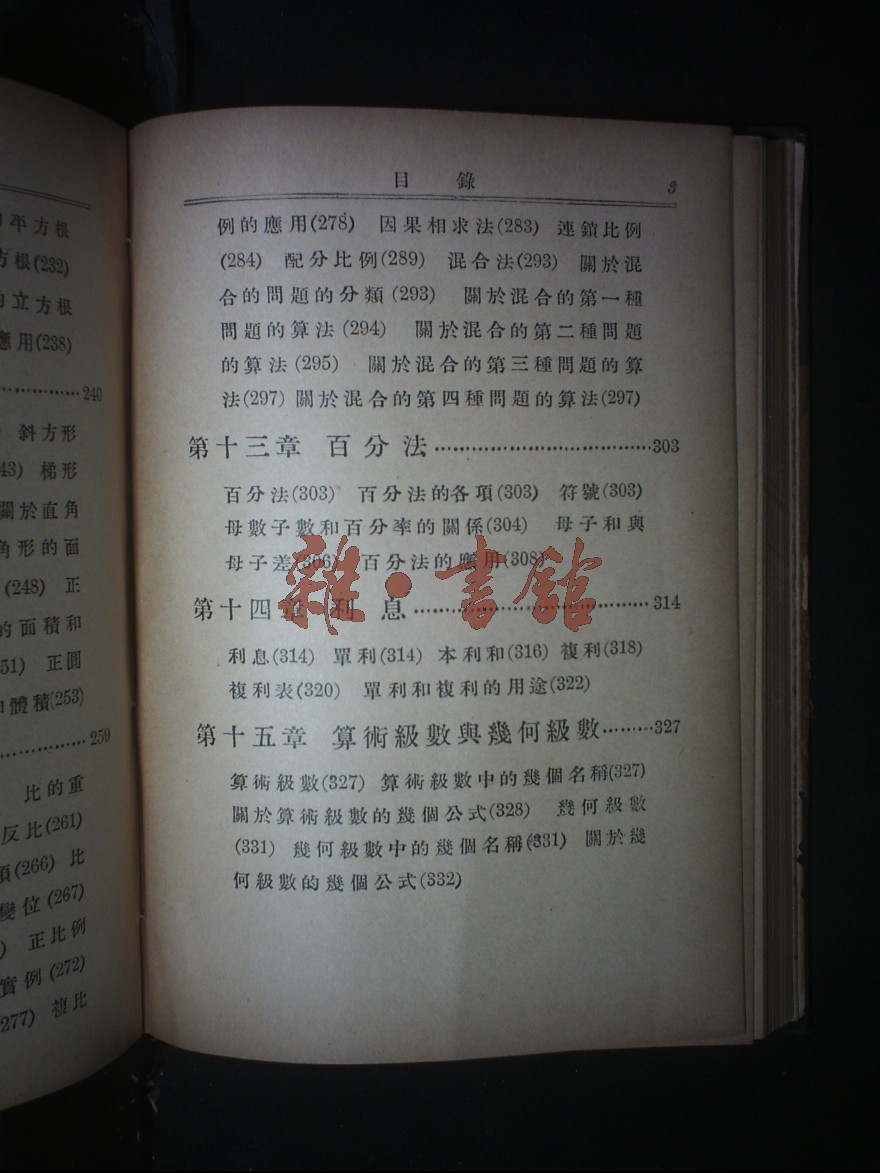 平方根
方根(232)
立方根
應用(238)
240
斜方形
43) 梯形
關於直角
角形的面
(248) 正
的面積和
51) 正圓
體積(253)
259
比的重
反比(261)
項(266) 比
變位(267)
) 正比例
實例(272)
277) 複比
目 錄 3
例的應用(278) 因果相求法(283) 連鎖比例
(284) 配分比例(289) 混合法(293) 關於混
合的問題的分類(293) 關於混合的第一種
問題的算法(294) 關於混合的第二種問題
的算法(295) 關於混合的第三種問題的算
法(297) 關於混合的第四種問題的算法(297)
第十三章 百分法……………………………303
百分法(303) 百分法的各項(303) 符號(303)
母數子數和百分率的關係(304) 母子和與
母子差(306) 百分法的應用(308)
雜·書館
第十四章 利息……………………………314
利息(314) 單利(314) 本利和(316) 複利(318)
複利表(320) 單利和複利的用途(322)
第十五章 算術級數與幾何級數………327
算術級數(327) 算術級數中的幾個名稱(327)
關於算術級數的幾個公式(328) 幾何級數
(331) 幾何級數中的幾個名稱(331) 關於幾
何級數的幾個公式(332)